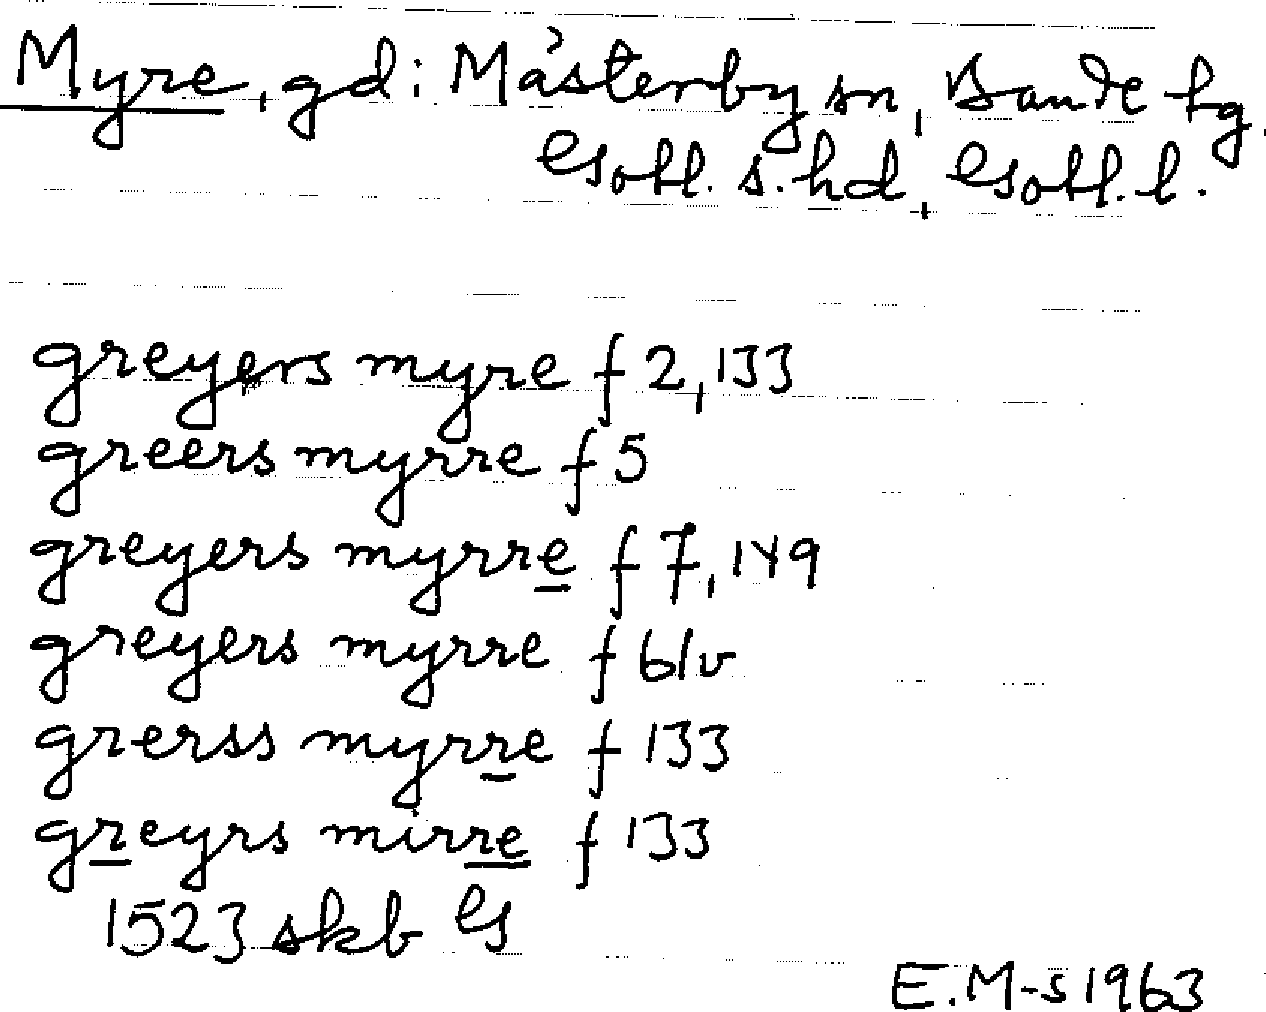 Myre, gd: Mästerby sn, Bande tg.
Gotl. s. hd, Gotl. l.
greyers myre f 2, 133
greers myrre f 5
greyers myrre f 7, 149
greyers myrre f 61v
grerss myrre f 133
greyrs mirre f 133
1523 skb G
E.M-s 1963